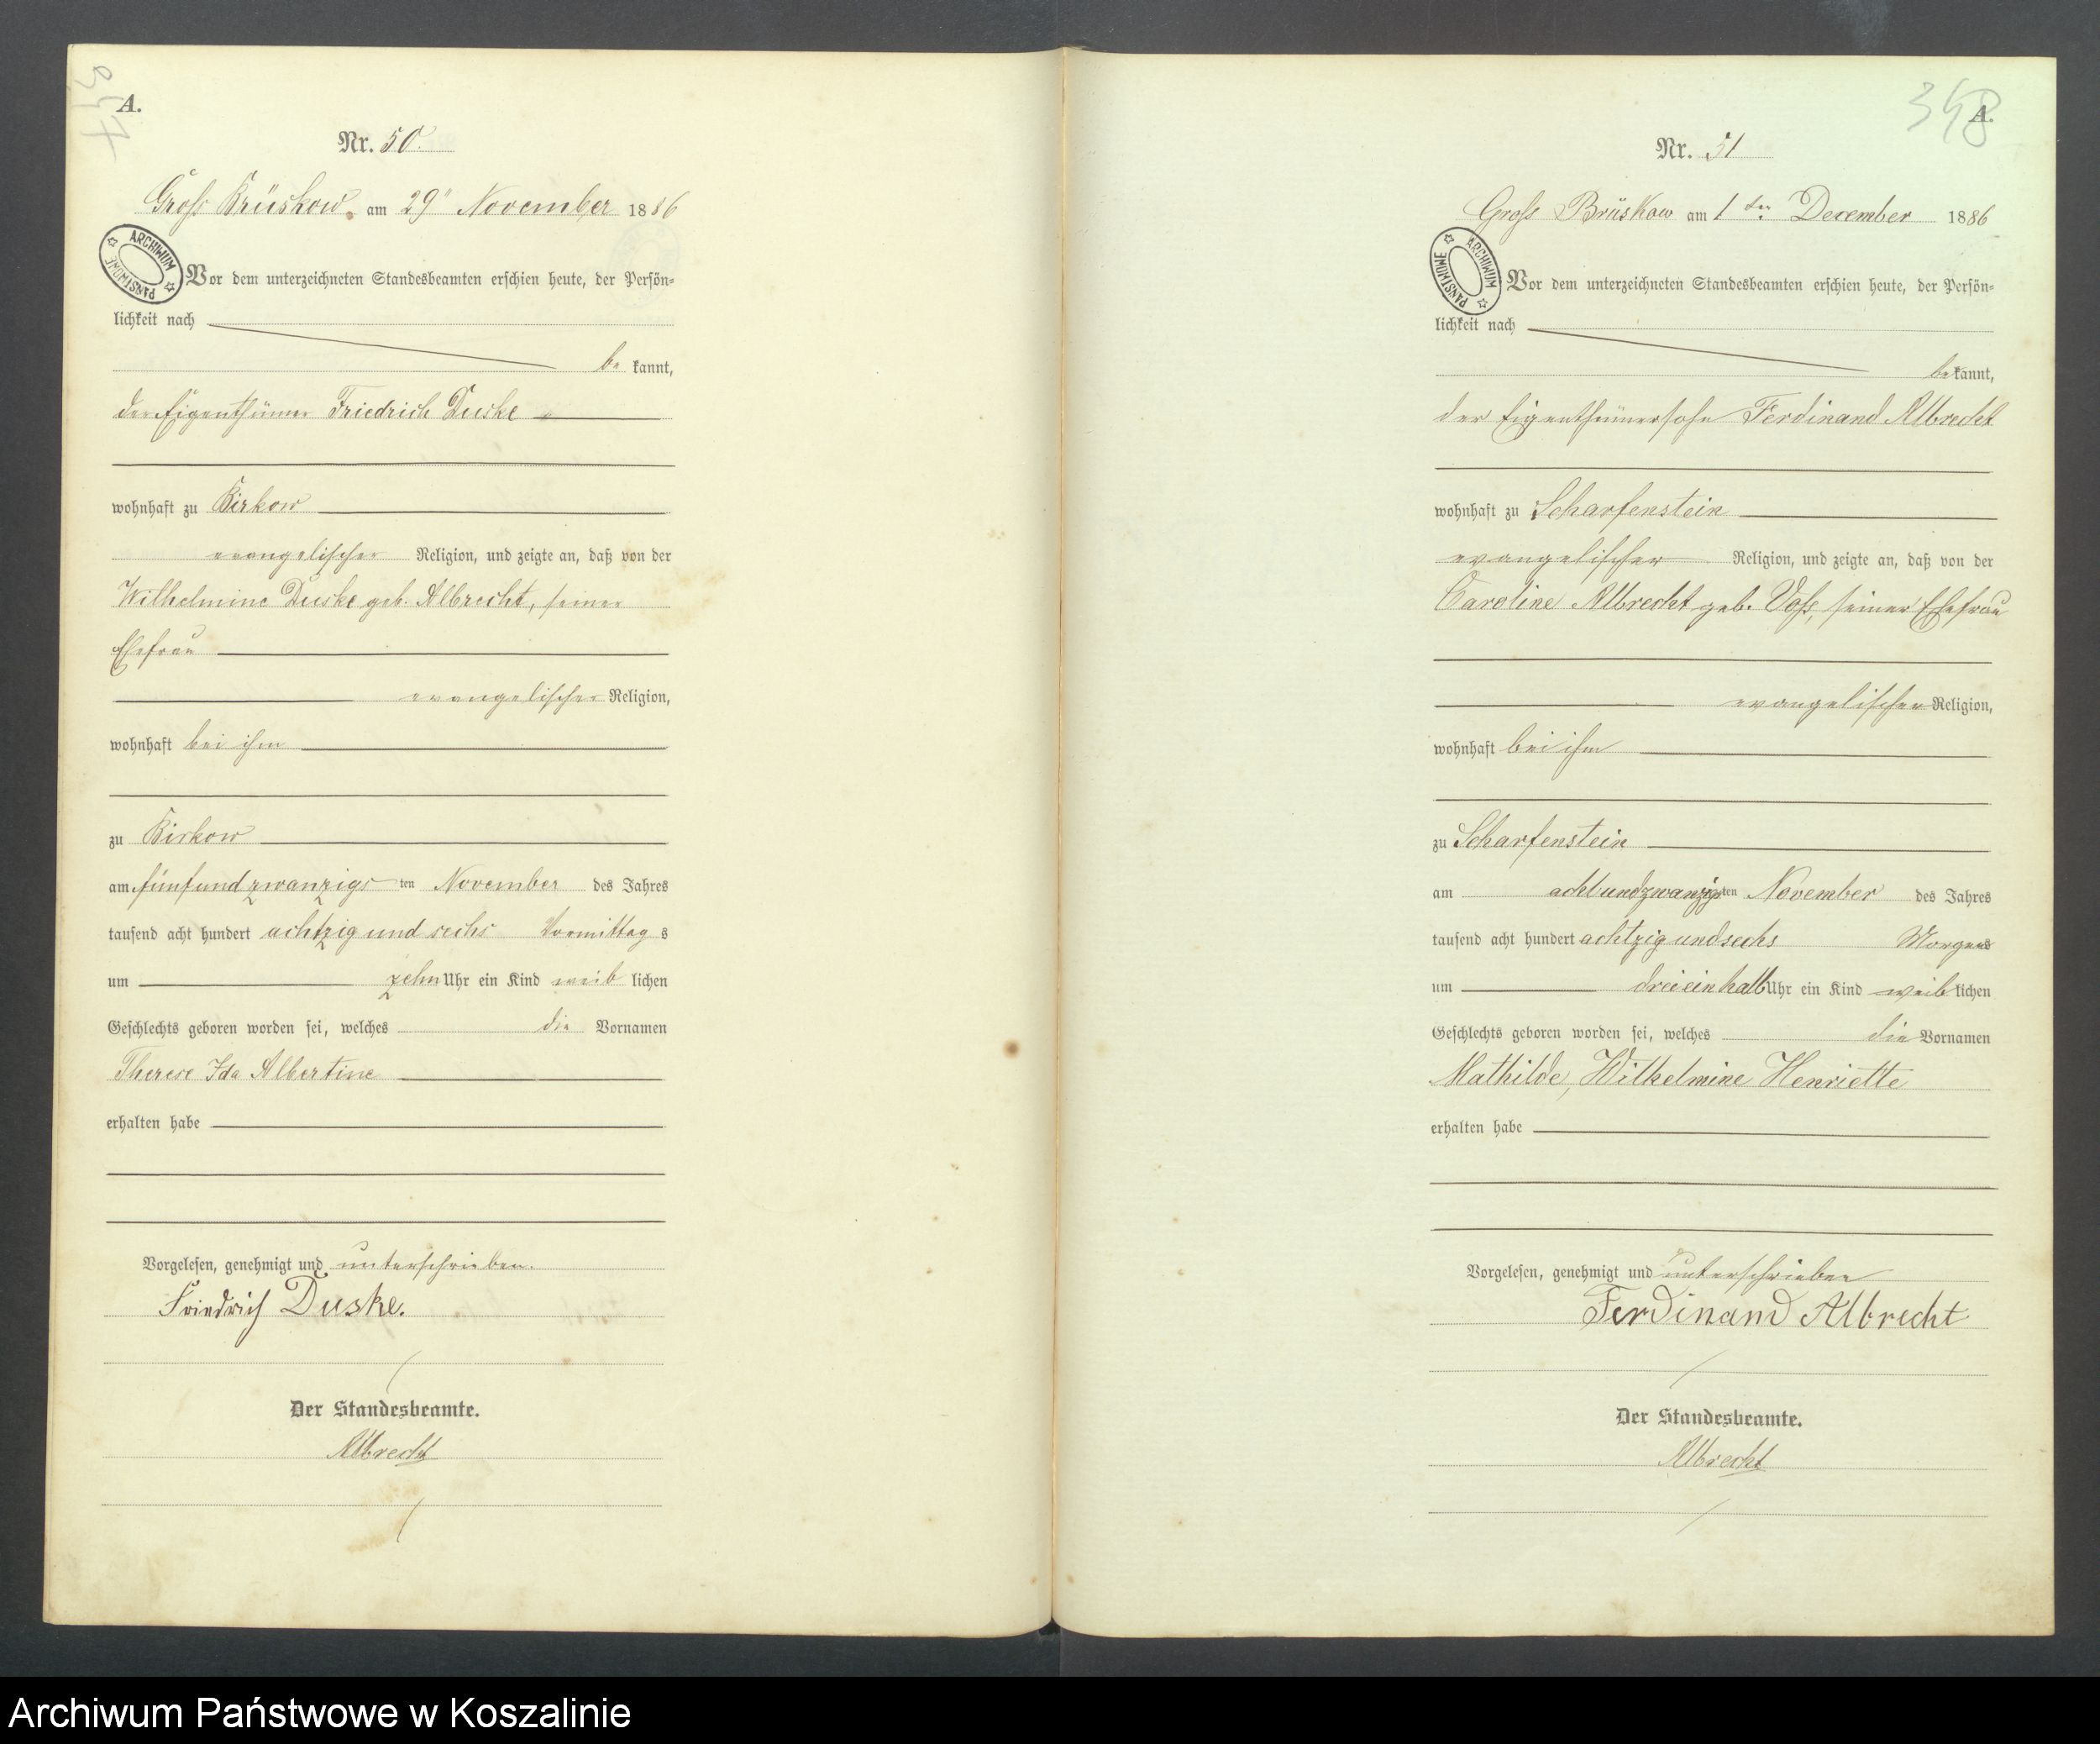 A.
Nr. 50.
Groß Brüskow, am 29" November 1886
ARCHIWUM PAŃSTWOWE
Vor dem unterzeichneten Standesbeamten erschien heute, der Persön-
lichkeit nach
be kannt,
der Eigenthümer Friedrich Duske
wohnhaft zu Birkow
evangelischer Religion, und zeigte an, daß von der
Wilhelmine Duske geb. Albrecht, seiner
Ehefrau
evangelischer Religion,
wohnhaft bei ihm
zu Birkow
am fünfundzwanzigs ten November des Jahres
tausend acht hundert achtzig und sechs Vormittag s
um zehn Uhr ein Kind weib lichen
Geschlechts geboren worden sei, welches die Vornamen
Therese Ida Albertine
erhalten habe
Vorgelesen, genehmigt und unterschrieben.
Friedrich Duske.
Der Standesbeamte.
Albrecht
348
A.
Nr. 51
Groß Brüskow am 1ten December 1886
ARCHIWUM PAŃSTWOWE
Vor dem unterzeichneten Standesbeamten erschien heute, der Persön-
lichkeit nach
be kannt,
der Eigenthümersohn Ferdinand Albrecht
wohnhaft zu Scharfenstein
evangelischer Religion, und zeigte an, daß von der
Caroline Albrecht geb. Voß, seiner Ehefrau
evangelischer Religion,
wohnhaft bei ihm
zu Scharfenstein
am achtundzwanzigsten November des Jahres
tausend acht hundert achtzig und sechs Morgens
um dreieinhalb Uhr ein Kind weib lichen
Geschlechts geboren worden sei, welches die Vornamen
Mathilde, Wilhelmine Henriette
erhalten habe
Vorgelesen, genehmigt und unterschrieben
Ferdinand Albrecht
Der Standesbeamte.
Albrecht
Archiwum Państwowe w Koszalinie